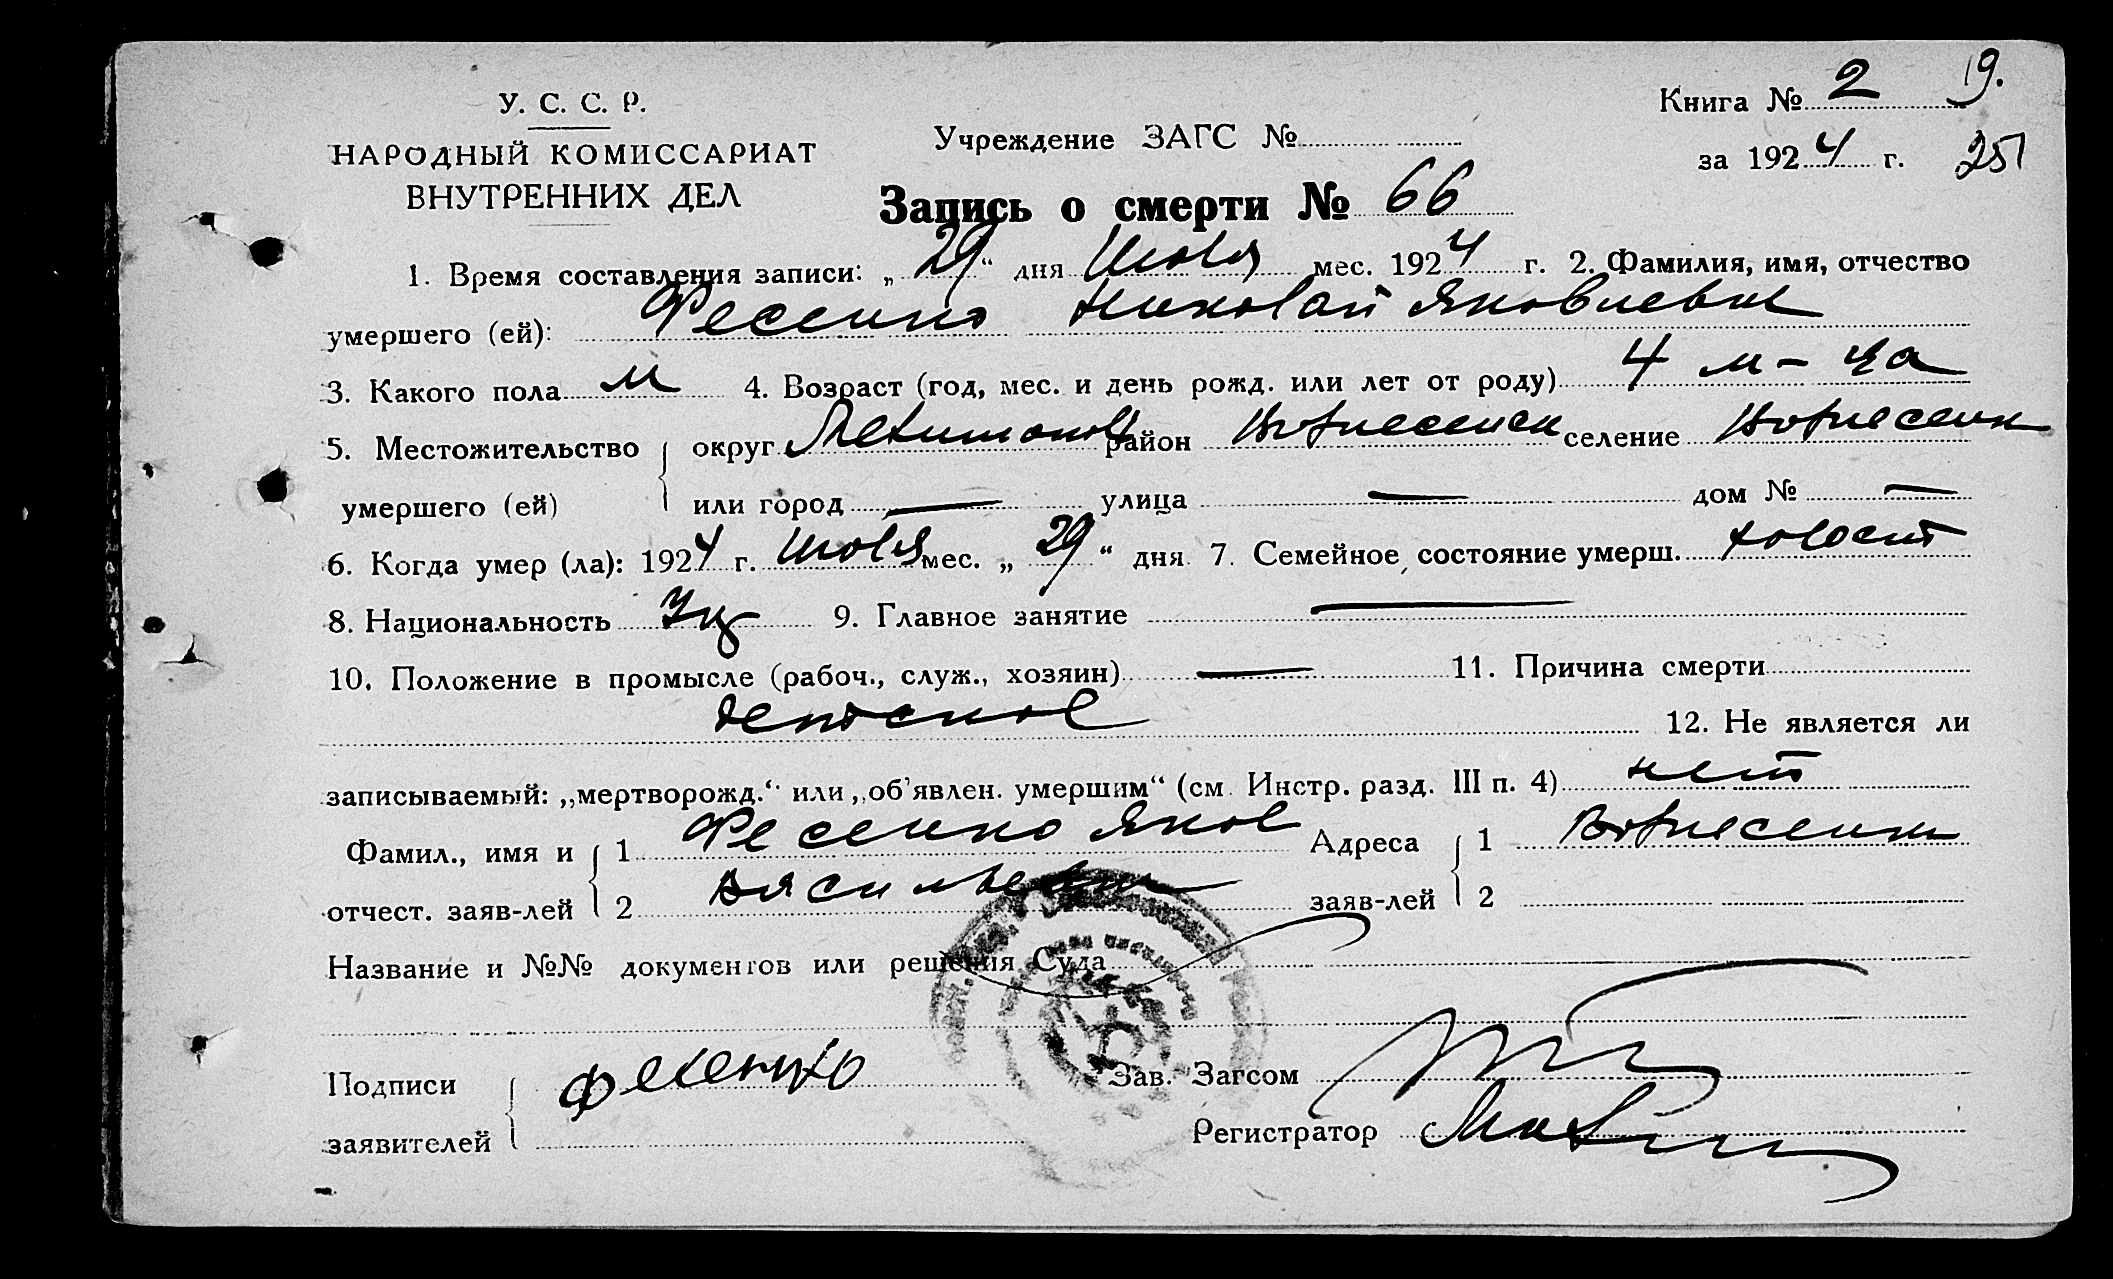 У. С. С. Р.
НАРОДНЫЙ КОМИССАРИАТ
ВНУТРЕННИХ ДЕЛ
Учреждение ЗАГС №
Книга № 2 19.
за 1924 г. 251
Запись о смерти № 66
1. Время составления записи: „29“ дня Июля мес. 1924 г. 2. Фамилия, имя, отчество
умершего (ей): Фесенко Николай Яковлевич
3. Какого пола м 4. Возраст (год, мес. и день рожд. или лет от роду) 4 м-ца
5. Местожительство округ район Вознесенск селение Вознесенк
умершего (ей) или город — улица — дом № —
6. Когда умер (ла): 1924 г. Июля мес. „29“ дня 7. Семейное состояние умерш. холост
8. Национальность 9. Главное занятие —
10. Положение в промысле (рабоч., служ., хозяин) — 11. Причина смерти
детское 12. Не является ли
записываемый: „мертворожд.“ или „об'явлен. умершим“ (см. Инстр. разд. III п. 4) нет
Фамил., имя и 1 Фесенко Яков Адреса 1 Вознесенк
отчест. заяв-лей 2 Васильевич заяв-лей 2
Название и №№ документов или решения Суда
Подписи Фесенко Зав. Загсом
заявителей Регистратор